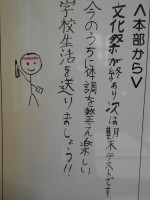 ＜本部から＞
文化祭が終わり次は期末テストです。
今のうちに体調を整え楽しい
学校生活を送りましょう!!